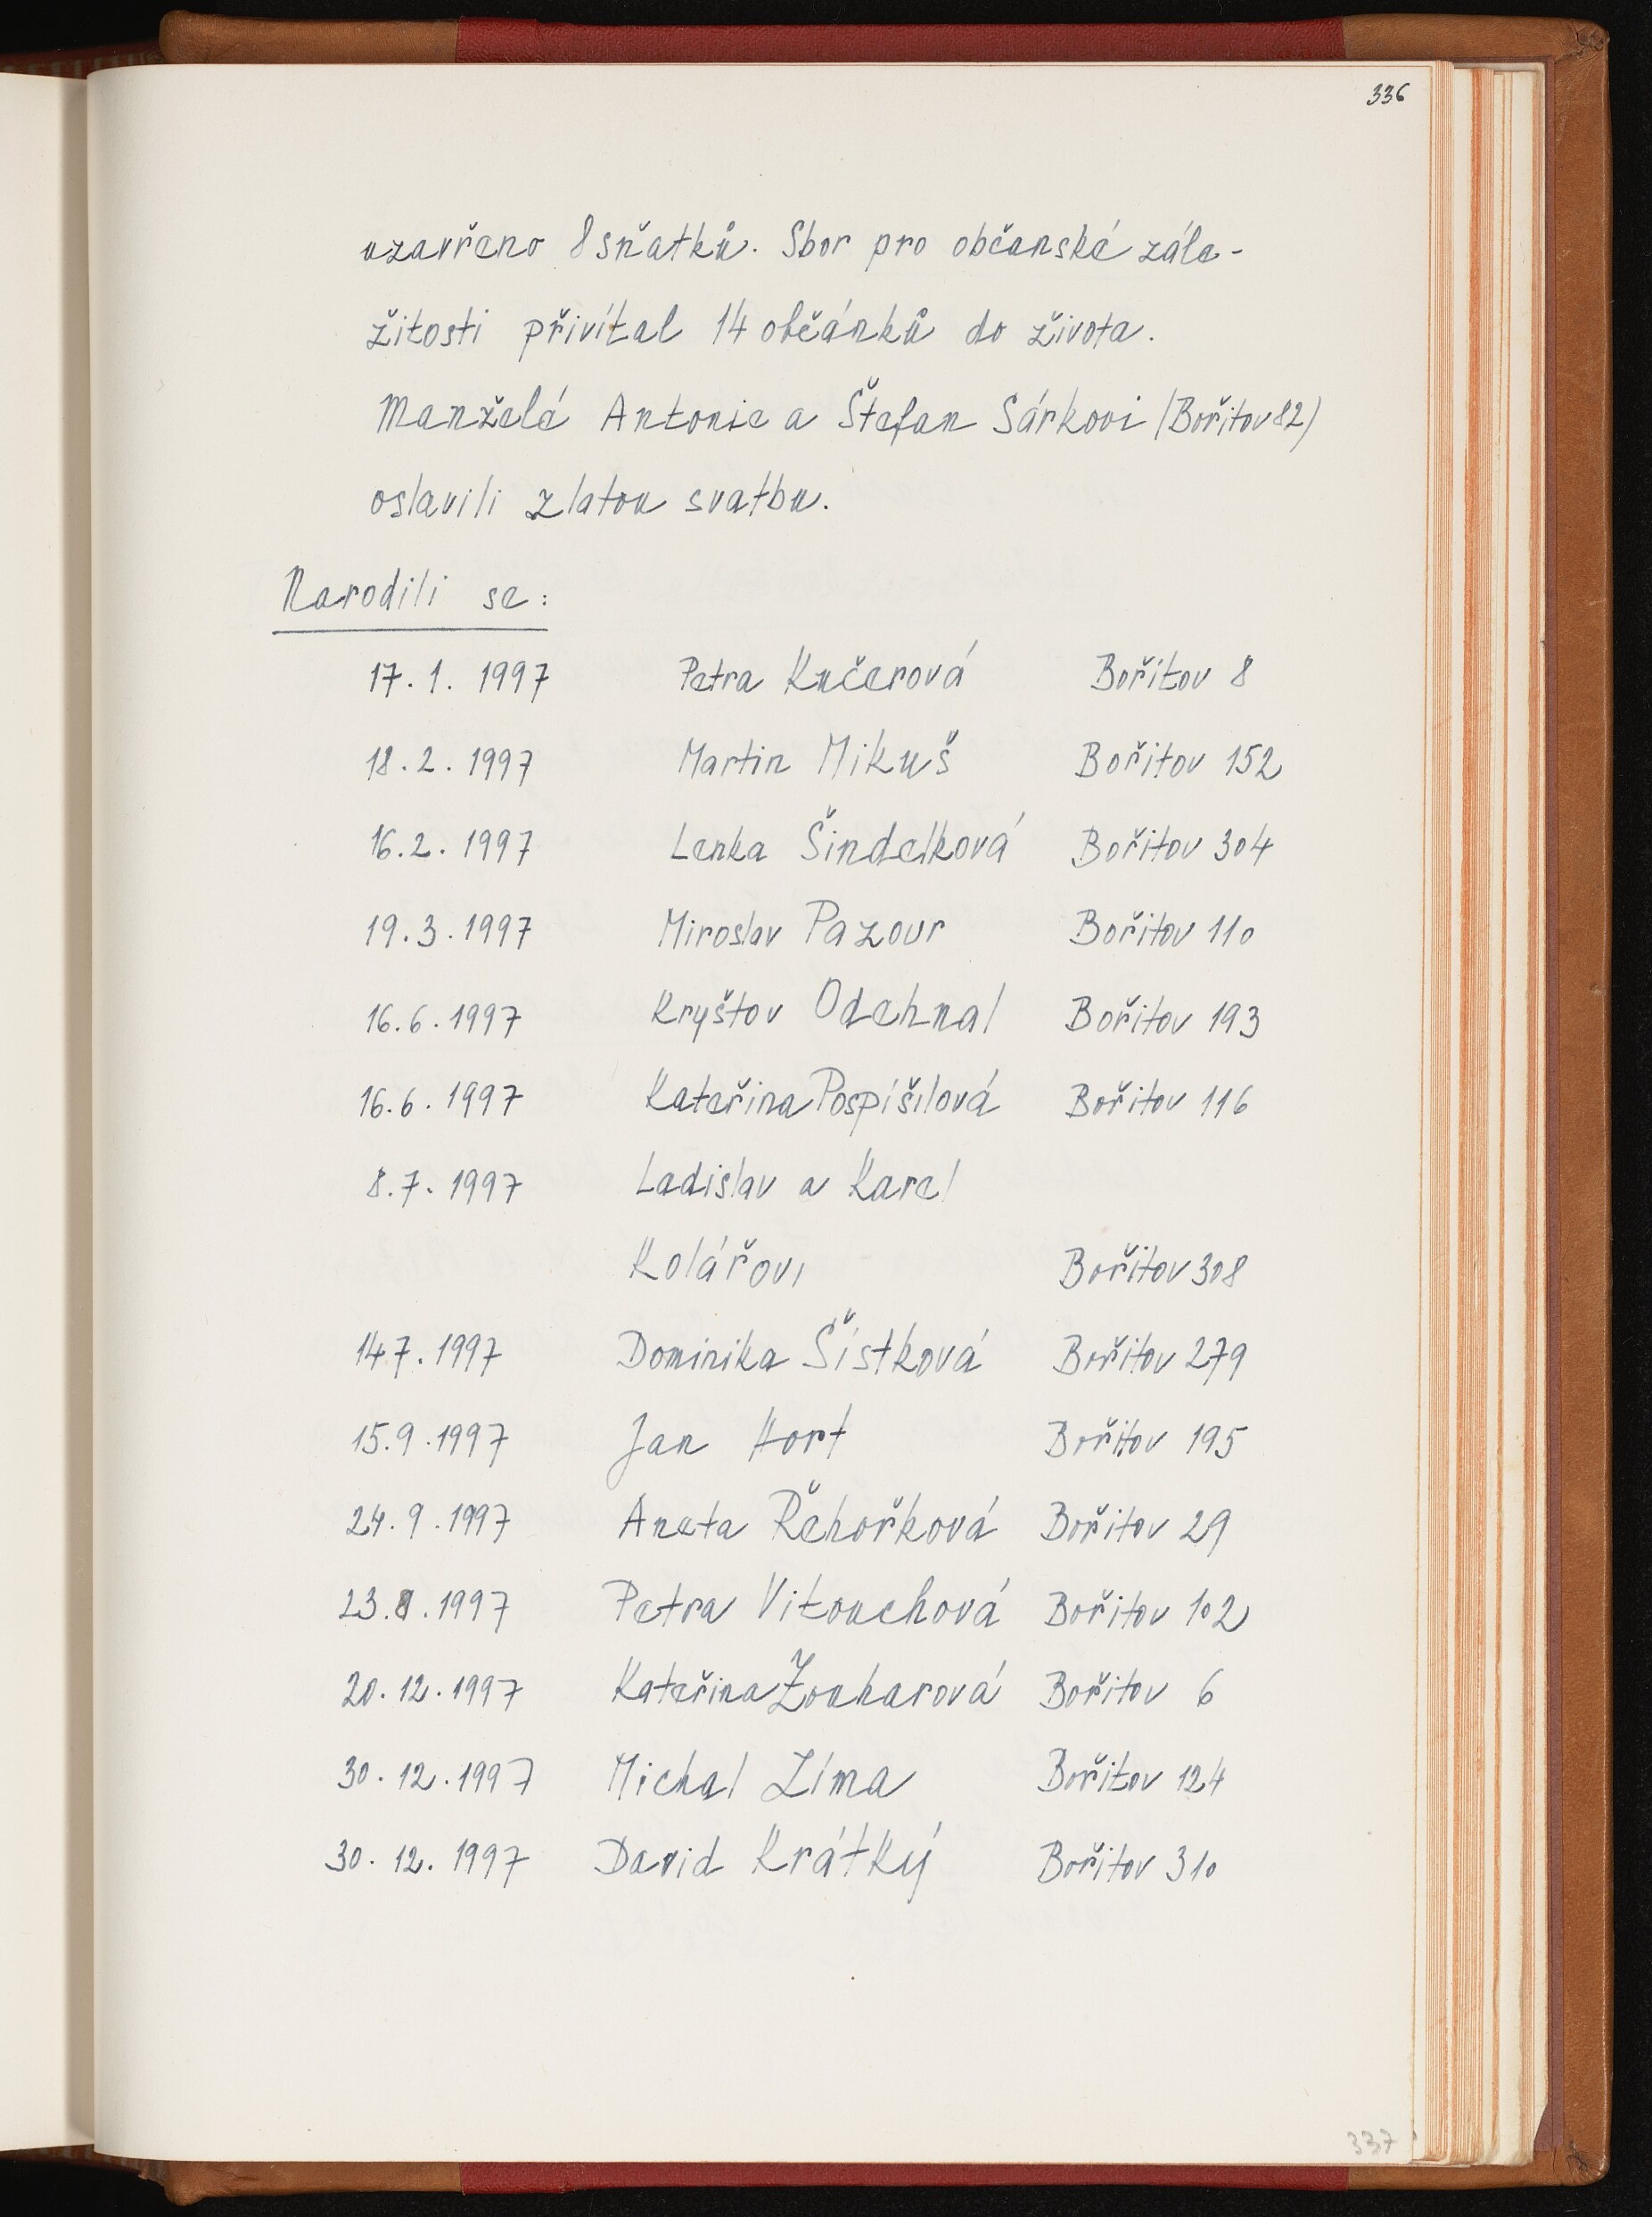 336
uzavřeno 8 sňatků. Sbor pro občanské zále-
žitosti přivítal 14 občánků do života.
Manželé Antonie a Štefan Sárkovi (Bořitov 82)
oslavili zlatou svatbu.
Narodili se:
17. 1. 1997 Petra Kučerová Bořitov 8
18. 2. 1997 Martin Mikuš Bořitov 152
16. 2. 1997 Lenka Šindelková Bořitov 304
19. 3. 1997 Miroslav Pazour Bořitov 110
16. 6. 1997 Kryštov Odehnal Bořitov 193
16. 6. 1997 Kateřina Pospíšilová Bořitov 116
8. 7. 1997 Ladislav a Karel
Kolářovi Bořitov 308
14.7. 1997 Dominika Šístková Bořitov 279
15. 9. 1997 Jan Hort Bořitov 195
24. 9. 1997 Aneta Řehořková Bořitov 29
23. 8. 1997 Petra Vitouchová Bořitov 102
20. 12. 1997 Kateřina Zouharová Bořitov 6
30. 12. 1997 Michal Líma Bořitov 124
30. 12. 1997 David Krátký Bořitov 310
337